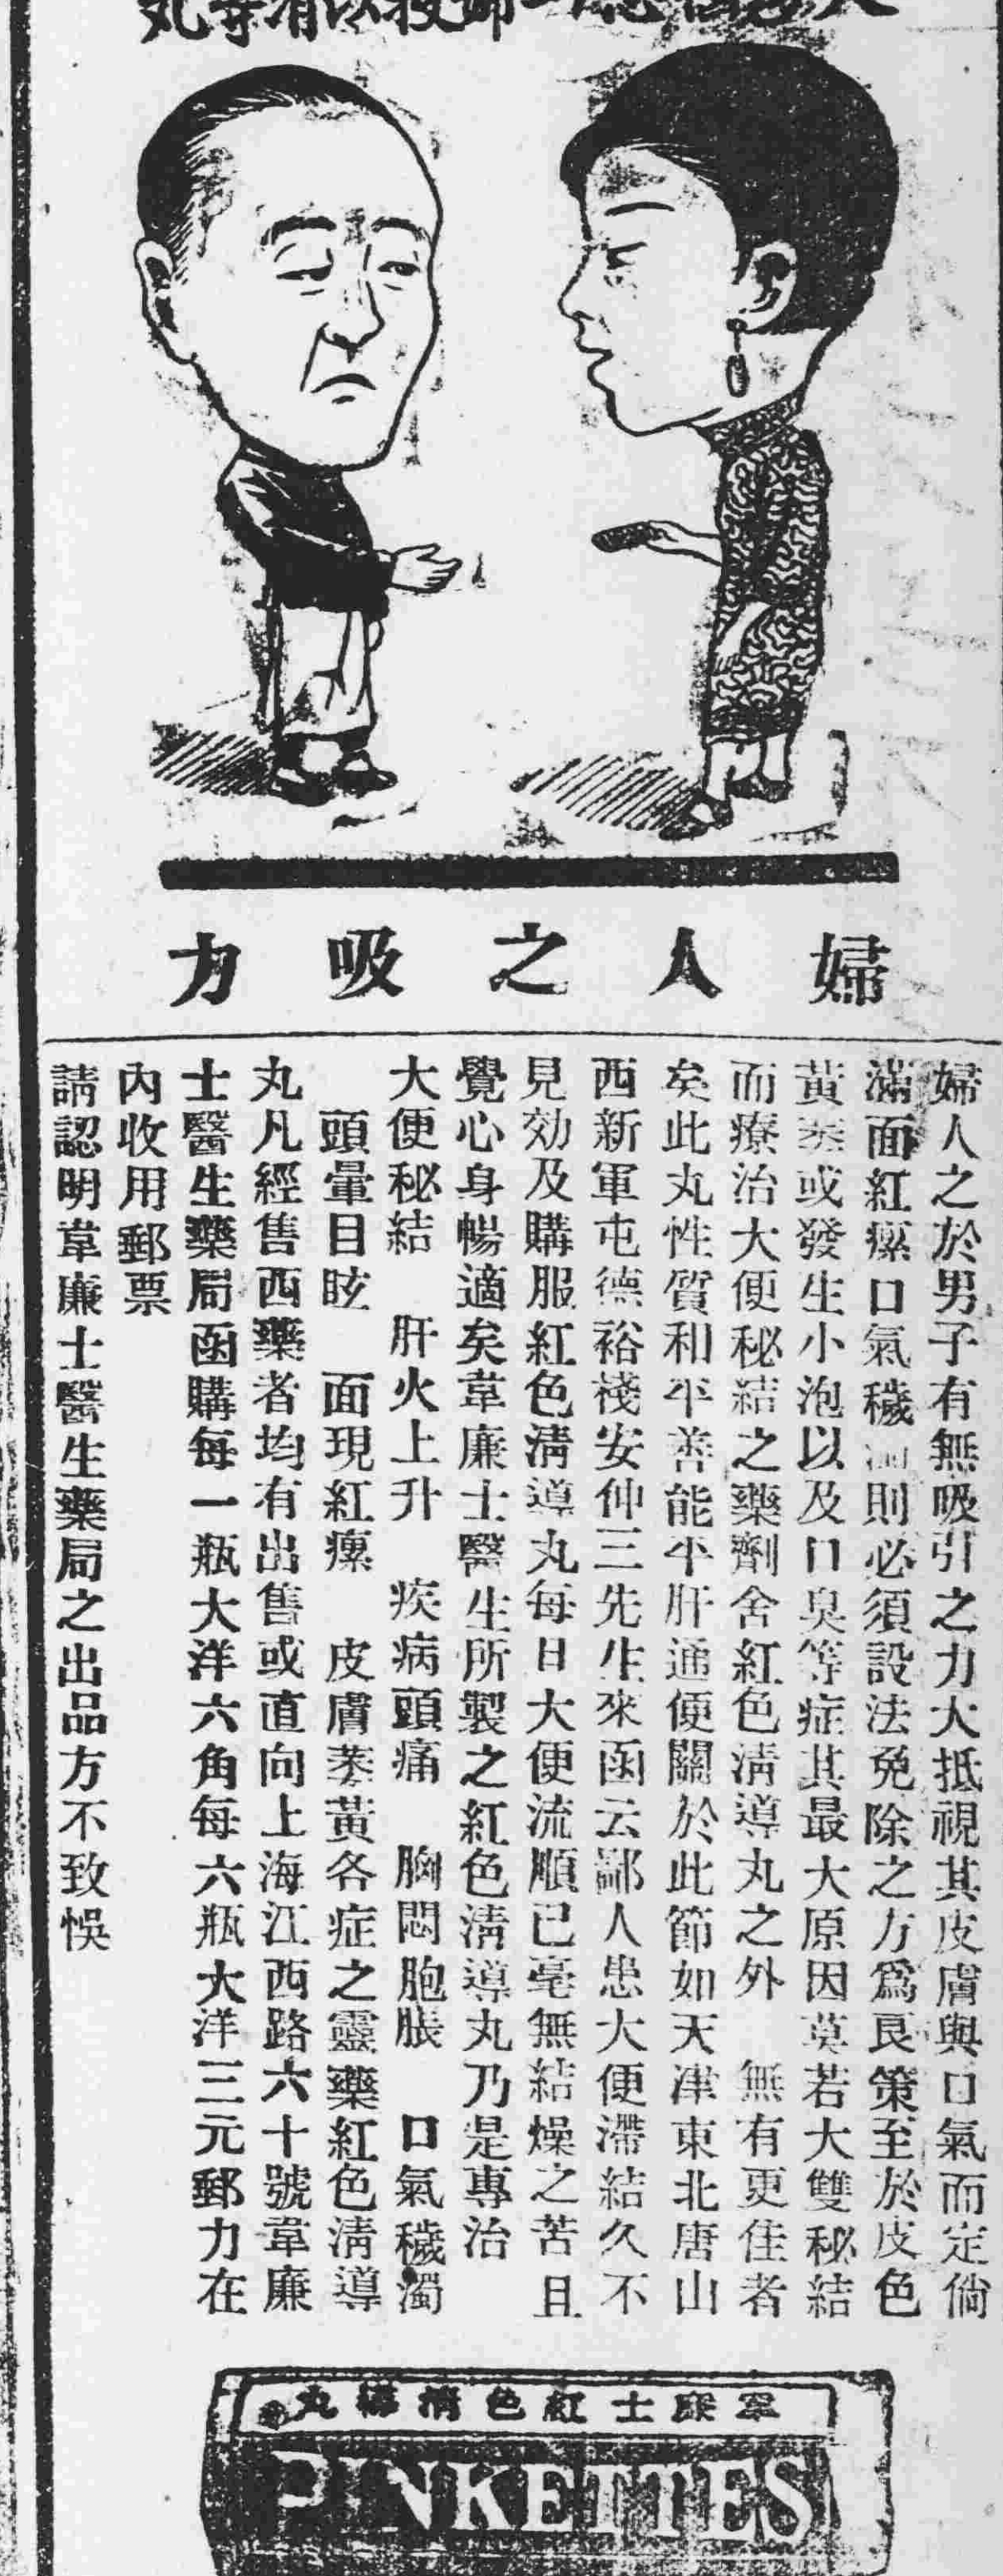 婦人之吸力
婦人之於男子有無吸引之力大抵視其皮膚與口氣而定倘
滿面紅瘰口氣穢則必須設法免除之方為良策至於皮色
黃萎或發生小泡以及口臭等症其最大原因莫若大雙秘結
而療治大便秘結之藥劑舍紅色淸導丸之外 無有更佳者
矣此丸性質和平善能平肝通便關於此節如天津東北唐山
西新軍屯德裕棧安仲三先生來函云鄙人患大便滯結久不
見効及購服紅色淸導丸每日大便流順已毫無結燥之苦且
覺心身暢適矣韋廉士醫生所製之紅色淸導丸乃是專治
大便秘結 肝火上升 疾病頭痛 胸悶胞脹 口氣穢濁
頭暈目眩 面現紅瘰 皮膚萎黃各症之靈藥紅色淸導
丸凡經售西藥者均有出售或直向上海江西路六十號韋廉
士醫生藥局函購每一瓶大洋六角每六瓶大洋三元郵力在
內收用郵票
請認明韋廉士醫生藥局之出品方不致悞
韋廉士紅色淸導丸
PINKETTES